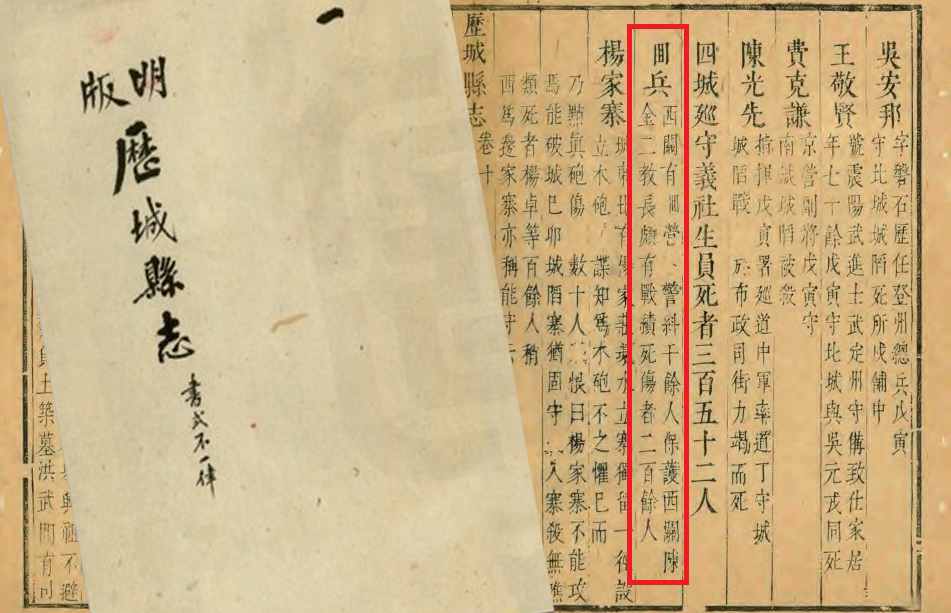 吳安邦
字磐石歷任登州總兵戊寅
守北城城陷死所戍鋪中
王敬賢
號震陽武進士武定州守備致仕家居
年七十餘戊寅守北城與吳元戎同死
費克謙
京營副將戊寅守
南城城陷被殺
陳光先
指揮戊寅署巡道中軍率道丁守城
城陷戰於布政司街力竭而死
四城巡守義社生員死者三百五十二人
回兵
西關有回營警糾千餘人保護西關陳
金二教長頗有戰績死傷者二百餘人
楊家寨
城東北有楊家莊環水立寨獨留一徑設
立木砲諜知為木砲不之懼已而
乃點眞砲傷數十人恨曰楊家寨不能攻
焉能破城已卯城陷寨猶固守入寨殺無譙
類死者楊卓等百餘人稍
西為邊家寨亦稱能守云
歷城縣志
卷十
興祖不避
土築墓洪武間有司
一
明版
歷城縣志
書式不一律